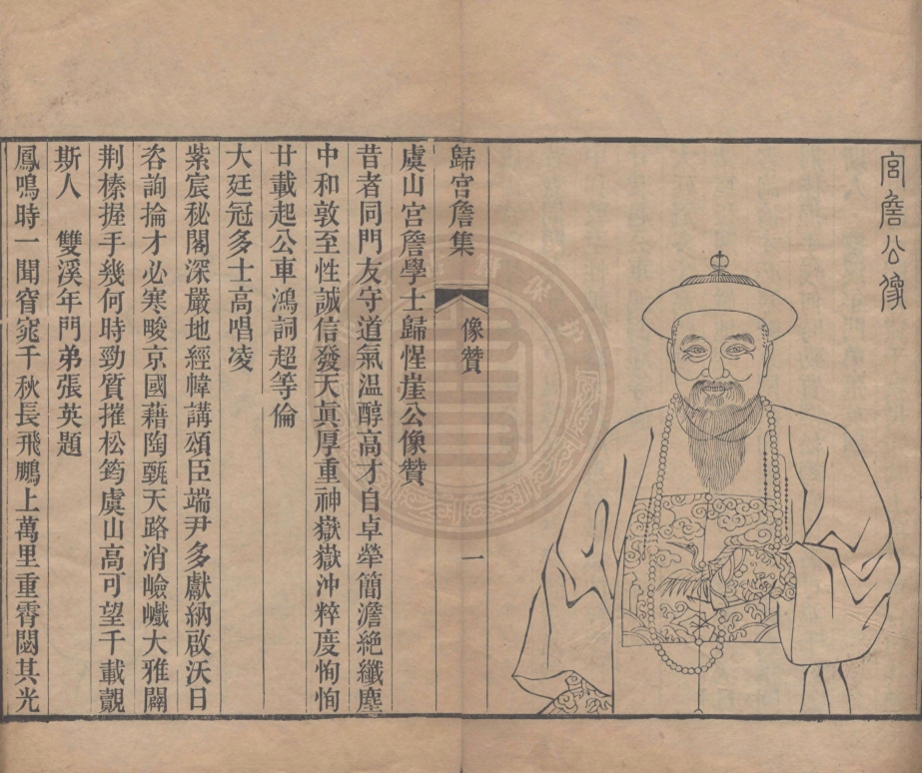 宮詹公像
歸宮詹集
像贊
一
虞山宮詹學士歸惺崖公像贊
昔者同門友守道氣溫醇高才自卓犖簡澹絶纖塵
中和敦至性誠信發天眞厚重神嶽嶽沖粹度恂恂
廿載起公車鴻詞超等倫
大廷冠多士高唱凌
紫宸秘閣深嚴地經幃講頌臣端尹多獻納啟沃日
咨詢掄才必寒畯京國藉陶甄天路消嶮巇大雅闢
荆榛握手幾何時勁質摧松筠虞山高可望千載覿
斯人　雙溪年門弟張英題
鳳鳴時一聞窅窕千秋長飛鵬上萬里重霄閟其光